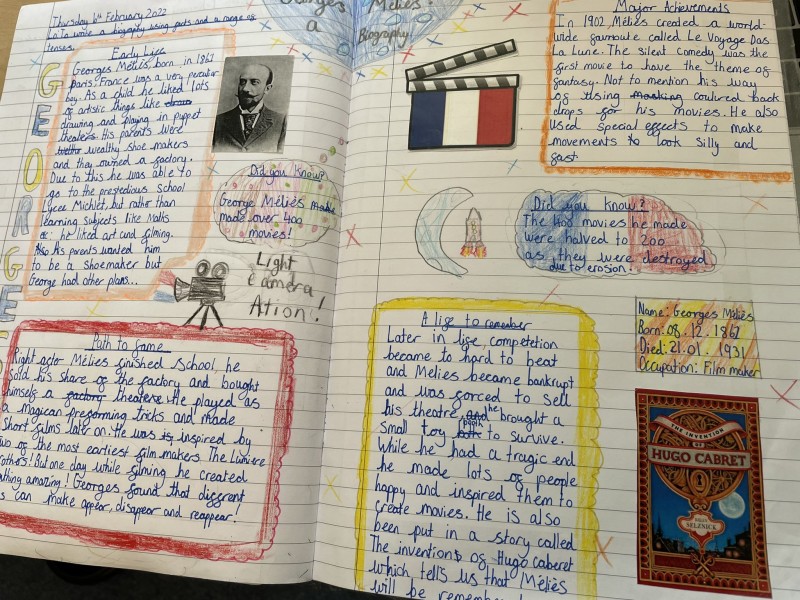 Thursday 6th February 2022
Lo:To write a biography using facts and a range of
tenses.
Georges Méliès:
a
Biography
GEORGE
Early Lice
Georges Méliès, born in 1861
Paris; France was a very peculiar
boy. As a child he liked lots
of artistic things like
drawing and playing in puppet
theaters. His parents were
wealthy shoe makers
and they owned a factory.
Due to this he was able to
go to the prestedious School
Lycee Michlet, but rather than
learning subjects like Maths
he liked art and filming.
Also his parents wanted him
to be a shoemaker but
George had other plans...
Did you Know?
George Méliès made
made over 400
movies!
Light
Camera
Ation!
Path to fame
Right after Mélies finished School, he
sold his share of the factory and bought
himself a factory theatere. He played as
a magican preforming tricks and made
Short films later on. He was is inspired by
two of the most earliest film makers The Lumiere
rothers! But one day while filming he created
thing amazing! Georges found that different
s can make appear, disapear and reappear!
Major Achievements
In 1902 Méliès created a world-
wide favrouite called Le Voyage Das
La Lune. The silent comedy was the
first movie to have the theme of
fantasy. Not to mention his way
of using making coulured back
drops for his movies. He also
used special effects to make
movements to look Silly and
fast
Did you know?
The 400 movies he made
were halved to 200
as they were destroyed
due to erosion.
A life to remember
Later in life, competetion
became to hard to beat
and Melies became bankrupt
and was forced to sell
his theatre, and he brought a
small toy booth to survive.
While he had a tragic end
he made lots of people
happy and inspired them to
create movies. He is also
been put in a story called
The inventions of Hugo caberet
which tells us that Méliès
will be remember
Name: Georges Méliès
Born: 08.12.1861
Died: 21.01.1931
Occupation: Film maker
THE INVENTION
HUGO CABRET
SELZNICK